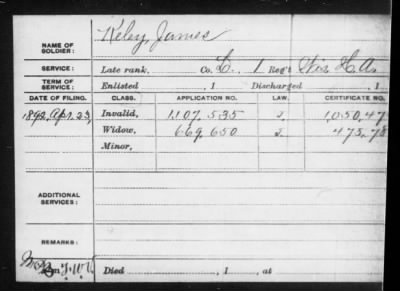 NAME OF SOLDIER: Kiley, James
SERVICE: Late rank, Co. L, 1 Reg't Wis H.A.
TERM OF SERVICE: Enlisted , 1 Discharged , 1
DATE OF FILING. CLASS. APPLICATION NO. LAW. CERTIFICATE NO.
1892, Apr. 23, Invalid, 1.107.535 J. 1,050,47
Widow, 669.650 J. 475,78
Minor,
ADDITIONAL SERVICES:
REMARKS:
Died , 1 , at